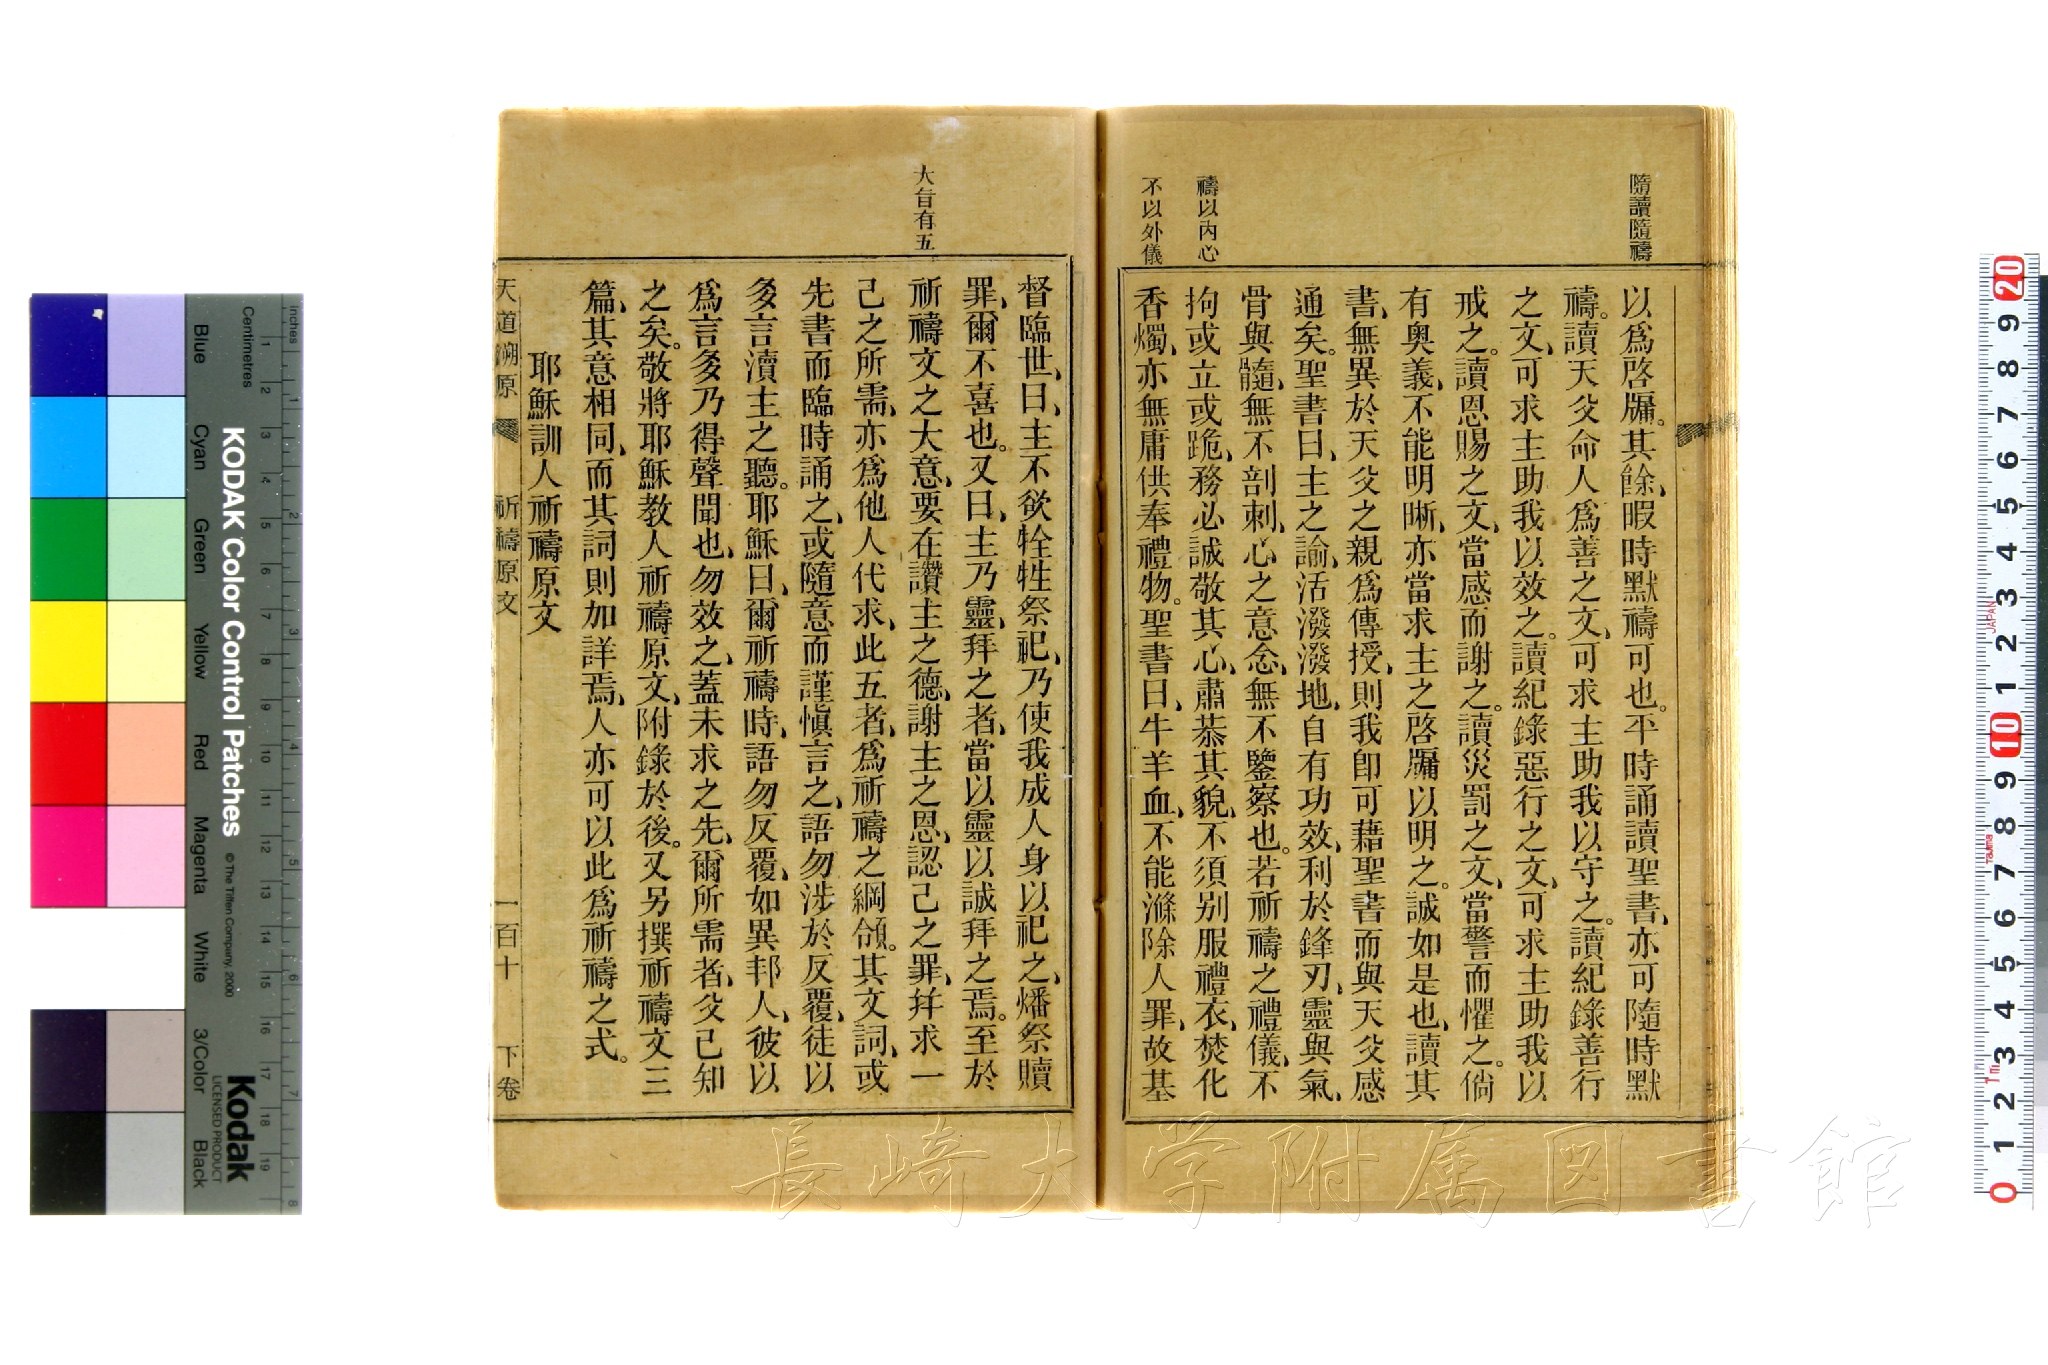 隨讀隨禱
禱以內心
不以外儀
以爲啓牖。其餘、暇時默禱可也。平時誦讀聖書、亦可隨時默
禱。讀天父命人爲善之文、可求主助我以守之。讀紀錄善行
之文、可求主助我以效之。讀紀錄惡行之文、可求主助我以
戒之。讀恩賜之文、當感而謝之。讀災罰之文、當警而懼之。倘
有奧義、不能明晰、亦當求主之啓牖以明之。誠如是也、讀其
書、無異於天父之親爲傳授、則我卽可藉聖書而與天父感
通矣。聖書曰、主之諭、活潑潑地、自有功效、利於鋒刃、靈與氣、
骨與髓、無不剖刺、心之意念、無不鑒察也。若祈禱之禮儀、不
拘或立或跪、務必誠敬其心、肅恭其貌、不須别服禮衣、焚化
香燭、亦無庸供奉禮物。聖書曰、牛羊血、不能滌除人罪、故基
大旨有五
督臨世、曰、主不欲牷牲祭祀、乃使我成人身以祀之、燔祭贖
罪、爾不喜也。又曰、主乃靈、拜之者、當以靈以誠拜之焉。至於
祈禱文之大意、要在讚主之德、謝主之恩、認己之罪、幷求一
己之所需、亦爲他人代求、此五者、爲祈禱之綱領。其文詞、或
先書而臨時誦之、或隨意而謹愼言之、語勿涉於反覆、徒以
多言瀆主之聽。耶穌曰、爾祈禱時、語勿反覆、如異邦人、彼以
爲言多乃得聲聞也、勿效之、蓋未求之先、爾所需者、父已知
之矣。敬將耶穌教人祈禱原文、附錄於後。又另撰祈禱文三
篇、其意相同、而其詞則加詳焉、人亦可以此爲祈禱之式。
耶穌訓人祈禱原文
天道溯原 祈禱原文 一百十 下卷
KODAK Color Control Patches
© The Tiffen Company, 2000
Kodak
LICENSED PRODUCT
Centimetres
inches
Blue
Cyan
Green
Yellow
Red
Magenta
White
3/Color
Black
1 2 3 4 5 6 7 8 9 10 11 12 13 14 15 16 17 18 19
1 2 3 4 5 6 7 8
20 9 8 7 6 5 4 3 2 1 10 9 8 7 6 5 4 3 2 1 0
JAPAN
Tajima
長崎大学附属図書館